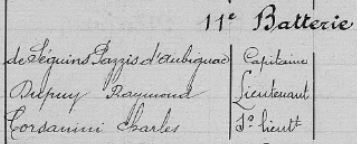 11e Batterie
de Séguins Pazzis d'Aubignac Capitaine
Dupuy Raymond Lieutenant
Tordanini Charles S. lieutt